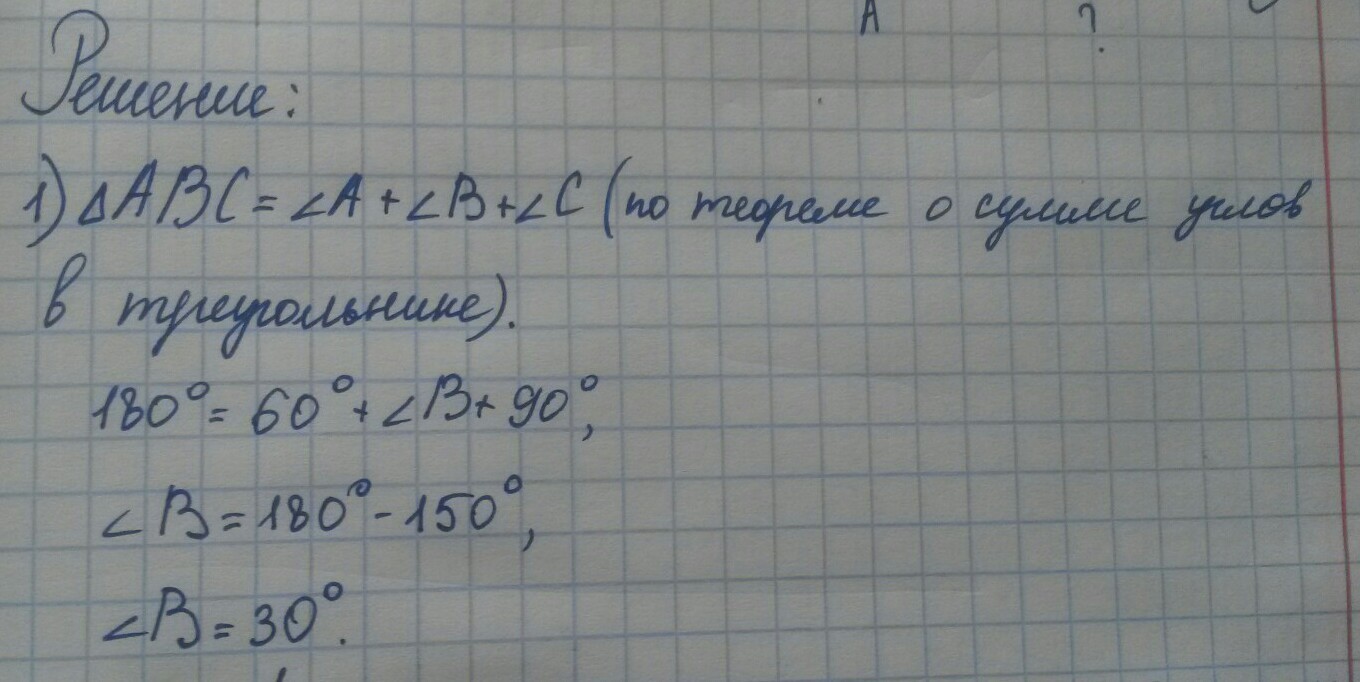 A ?
Решение:
1) ∆ABC = ∠A + ∠B + ∠C (по теореме о сумме углов
в треугольнике).
180° = 60° + ∠B + 90°,
∠B = 180° - 150°,
∠B = 30°.